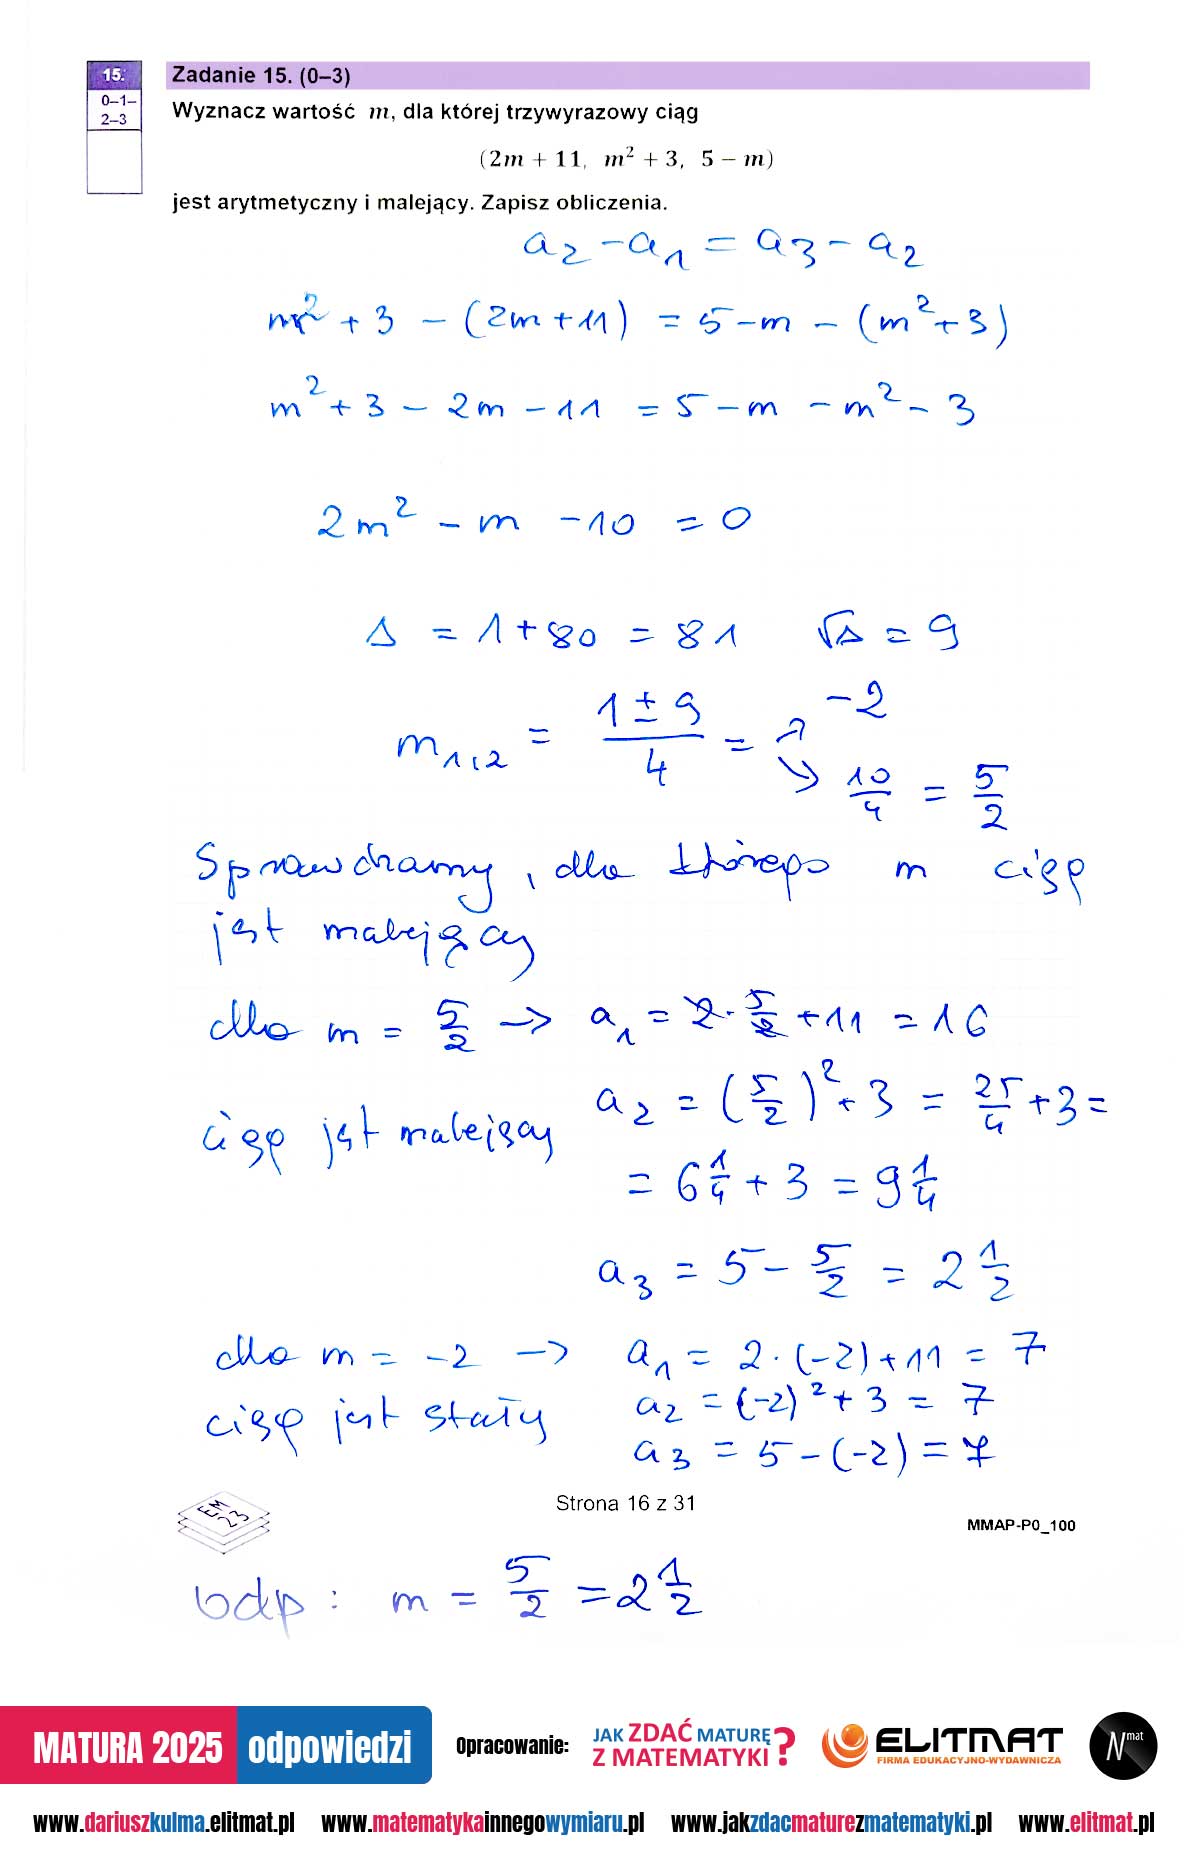 15.
0–1–
2–3
Zadanie 15. (0–3)
Wyznacz wartość m, dla której trzywyrazowy ciąg
(2m + 11, m² + 3, 5 − m)
jest arytmetyczny i malejący. Zapisz obliczenia.
a₂ − a₁ = a₃ − a₂
m² + 3 − (2m + 11) = 5 − m − (m² + 3)
m² + 3 − 2m − 11 = 5 − m − m² − 3
2m² − m − 10 = 0
Δ = 1 + 80 = 81 √Δ = 9
m₁,₂ = (1 ± 9)/4 = ↗ −2
↘ 10/4 = 5/2
Sprawdzamy, dla którego m ciąg
jest malejący
dla m = 5/2 → a₁ = 2 · 5/2 + 11 = 16
a₂ = (5/2)² + 3 = 25/4 + 3 =
ciąg jest malejący
= 6 1/4 + 3 = 9 1/4
a₃ = 5 − 5/2 = 2 1/2
dla m = −2 → a₁ = 2 · (−2) + 11 = 7
ciąg jest stały a₂ = (−2)² + 3 = 7
a₃ = 5 − (−2) = 7
Strona 16 z 31
EM
23
MMAP-P0_100
odp: m = 5/2 = 2 1/2
MATURA 2025 odpowiedzi
Opracowanie:
JAK ZDAĆ MATURĘ
Z MATEMATYKI?
ELITMAT
FIRMA EDUKACYJNO-WYDAWNICZA
Nmat
www.dariuszkulma.elitmat.pl www.matematykainnegowymiaru.pl www.jakzdacmaturezmatematyki.pl www.elitmat.pl